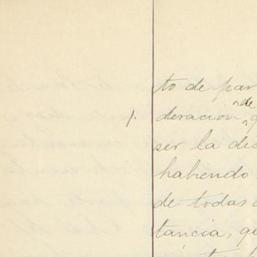 to de par
de
deración, q
ser la dis
habiendo
de todas
tancia, qu